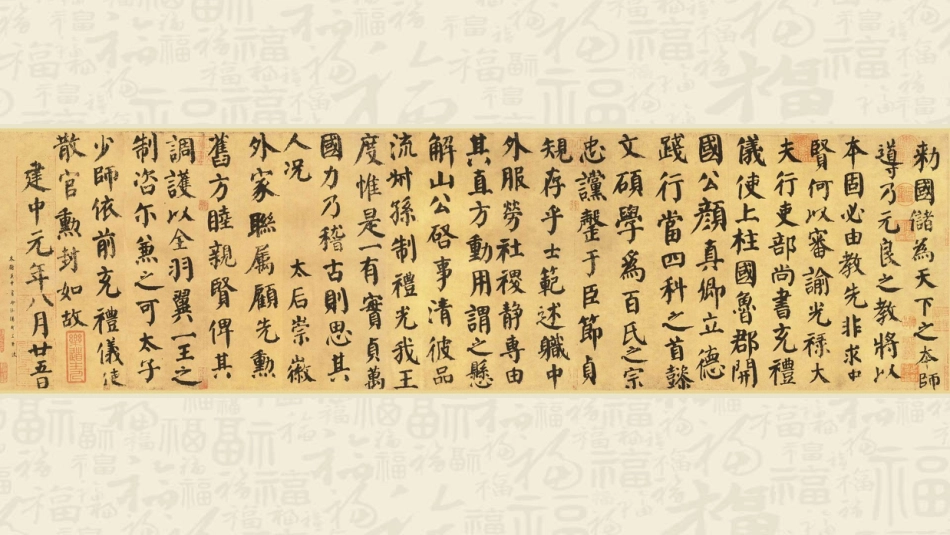 勑國儲為天下之本師
導乃元良之教將以
本固必由教先非求中
賢何以審諭光祿大
夫行吏部尚書充禮
儀使上柱國魯郡開
國公顏真卿立德
踐行當四科之首懿
文碩學為百氏之宗
忠讜罄于臣節貞
規存乎士範述職中
外服勞社稷静專由
其直方動用謂之懸
解山公啓事清彼品
流叔孫制禮光我王
度惟是一有實貞萬
國力乃稽古則思其
人况 太后崇徽
外家聯属顧先勳
舊方睦親賢俾其
調護以全羽翼一王之
制咨尔兼之可太子
少師依前充禮儀使
散官勳封如故
建中元年八月廿五日